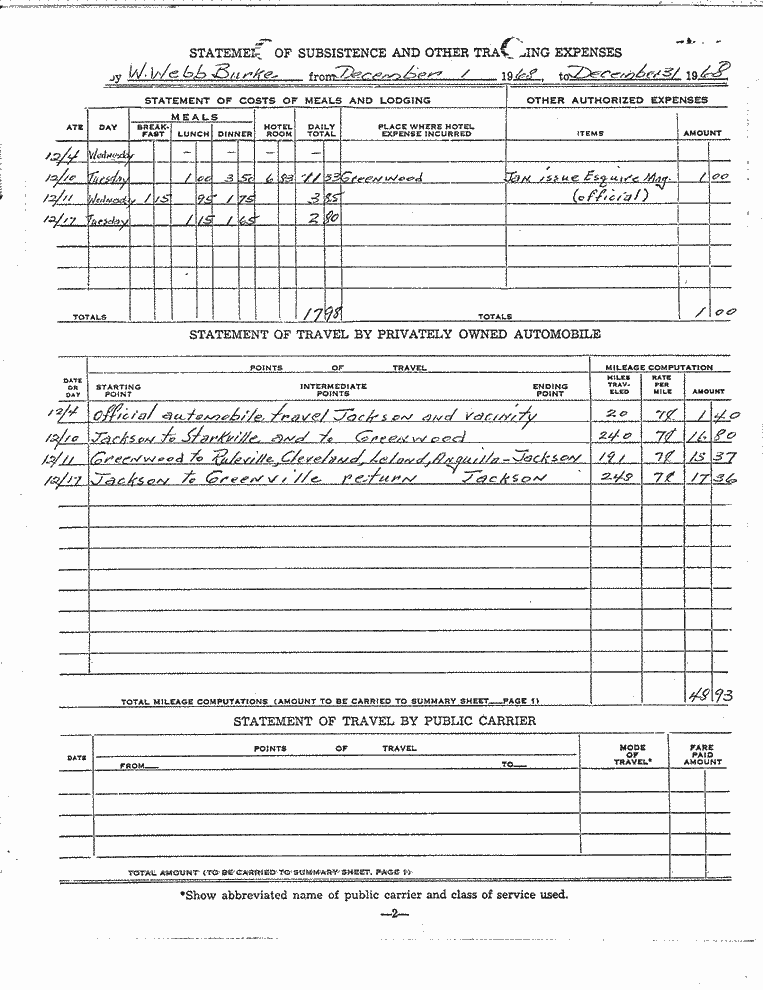 STATEME OF SUBSISTENCE AND OTHER TRA ING EXPENSES
by W. Webb Burke from December 1 1968, to December 31 1968
STATEMENT OF COSTS OF MEALS AND LODGING OTHER AUTHORIZED EXPENSES
MEALS
ATE DAY BREAK-FAST LUNCH DINNER HOTEL ROOM DAILY TOTAL PLACE WHERE HOTEL EXPENSE INCURRED ITEMS AMOUNT
12/4 Wednesday — — — —
12/10 Tuesday 1 00 3 50 6 83 11 33 Greenwood Jan issue Esquire Mag. 1 00
12/11 Wednesday 1 15 95 1 75 3 85 (official)
12/17 Tuesday 1 15 1 65 2 80
TOTALS 17 98 TOTALS 1 00
STATEMENT OF TRAVEL BY PRIVATELY OWNED AUTOMOBILE
POINTS OF TRAVEL MILEAGE COMPUTATION
DATE OR DAY STARTING POINT INTERMEDIATE POINTS ENDING POINT MILES TRAV-ELED RATE PER MILE AMOUNT
12/4 Official automobile travel Jackson and vacinity 20 7¢ 1 40
12/10 Jackson to Starkville and to Greenwood 240 7¢ 16 80
12/11 Greenwood to Ruleville, Cleveland, Leland, Anguilla - Jackson 191 7¢ 13 37
12/17 Jackson to Greenville return Jackson 248 7¢ 17 36
TOTAL MILEAGE COMPUTATIONS (AMOUNT TO BE CARRIED TO SUMMARY SHEET—PAGE 1) 48 93
STATEMENT OF TRAVEL BY PUBLIC CARRIER
DATE POINTS OF TRAVEL MODE OF TRAVEL* FARE PAID AMOUNT
FROM— TO—
TOTAL AMOUNT (TO BE CARRIED TO SUMMARY SHEET, PAGE 1)
*Show abbreviated name of public carrier and class of service used.
—2—